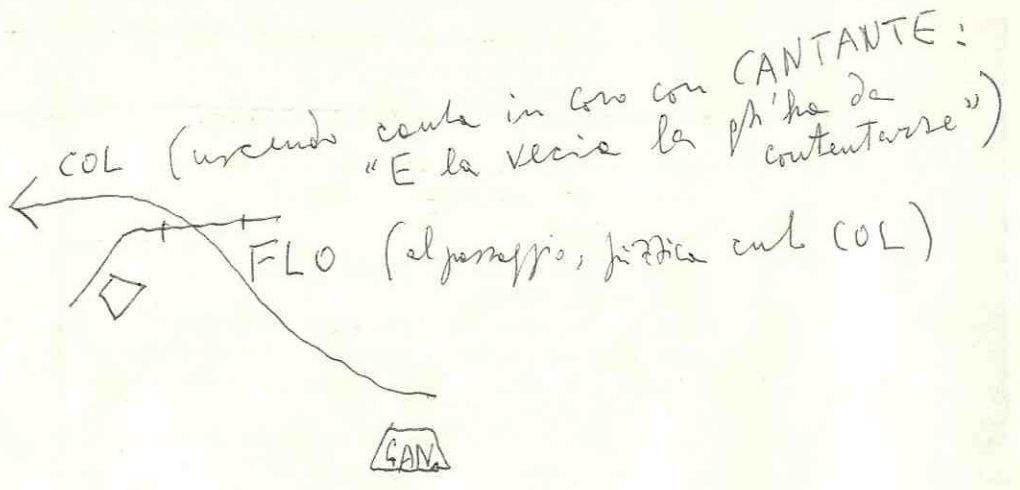 COL (uscendo canta in coro con CANTANTE:
"E la vecia la gh'ha da
contentarse")
FLO (al passaggio, pizzica culo COL)
CAN.